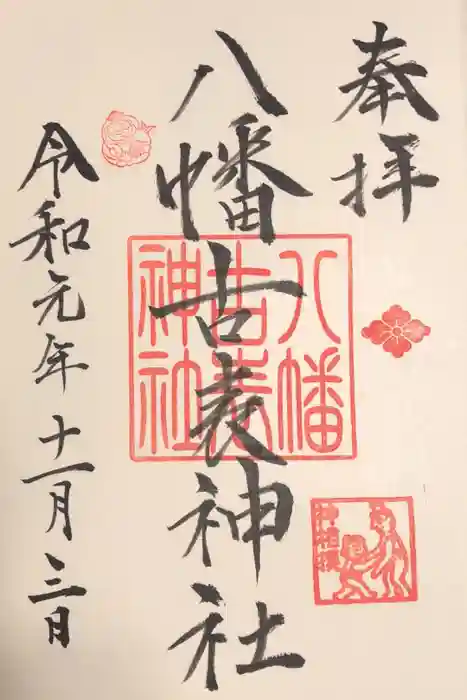 奉拝
八幡古表神社
令和元年十一月三日
八幡
古表
神社
神相撲